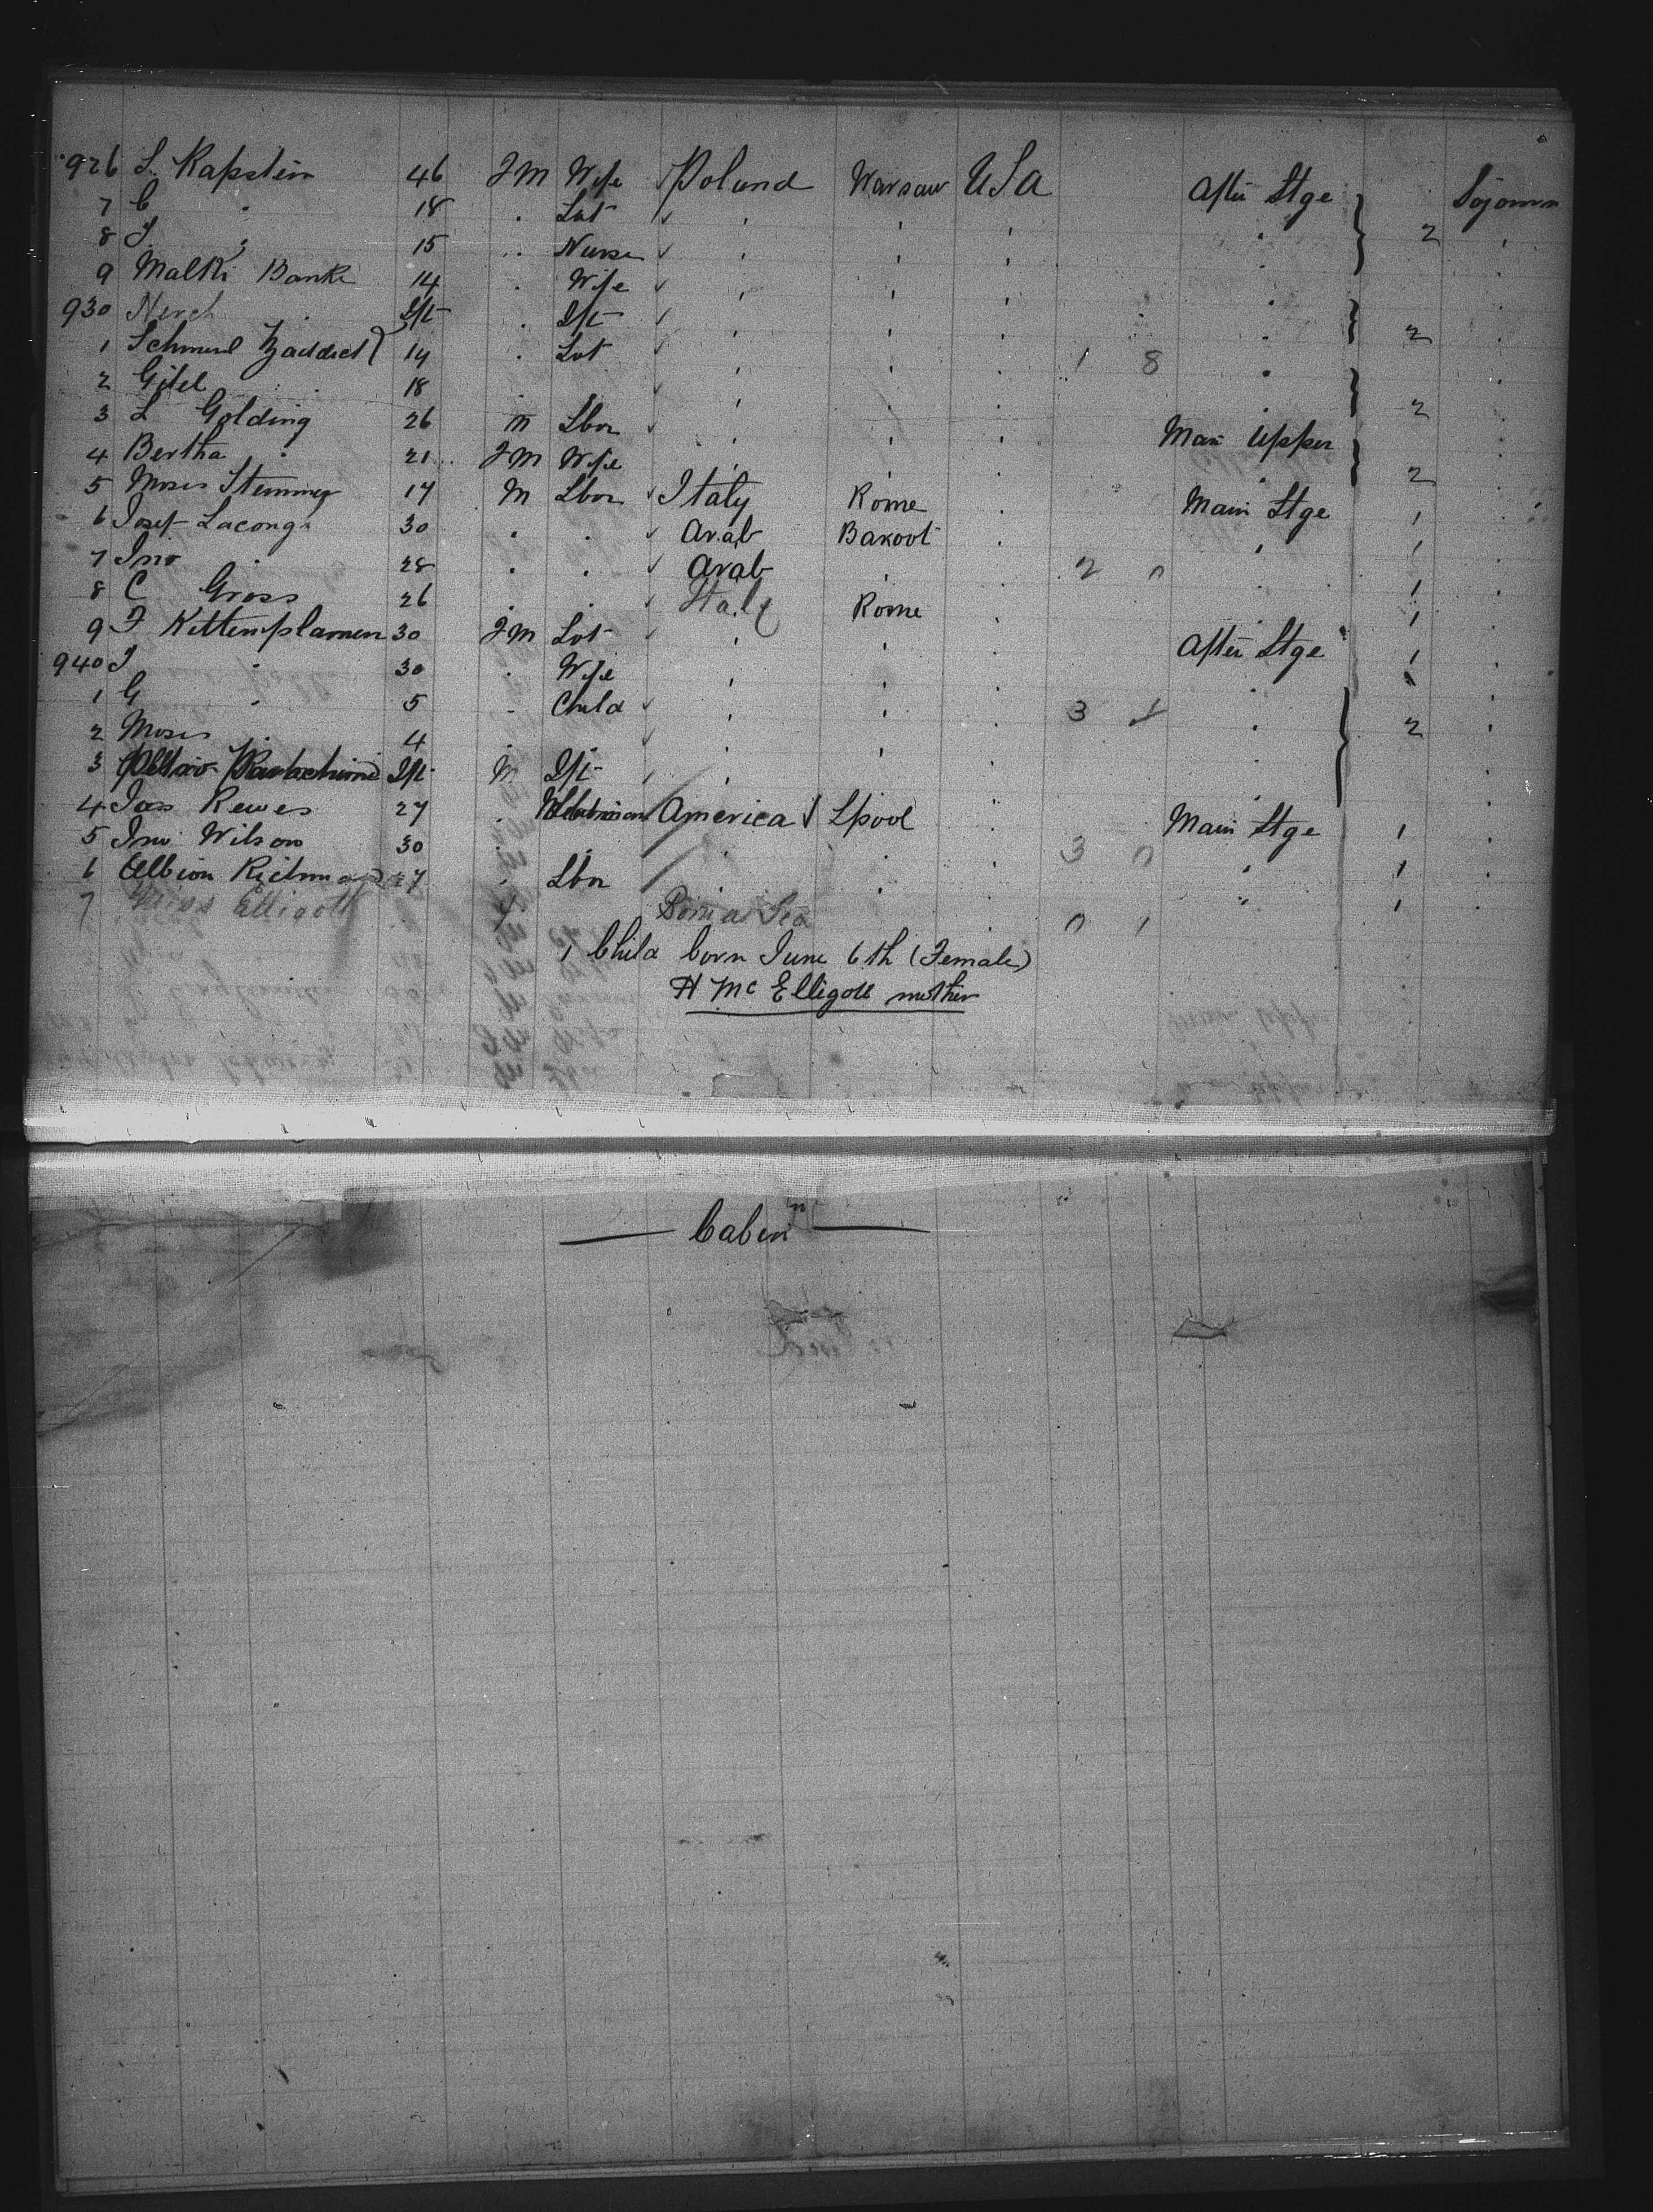 926 S. Kapstein 46 F M Wife Poland Warsaw USA After Stge Sojourn
7 C " 18 " ✓ " " " " 2 "
8 J. " 15 " Nurse ✓ " " " " "
9 Malki Banke 14 " Wife ✓ " " " " "
930 " Ift " Ift ✓ " " " " 2 "
1 Schmerl 14 " ✓ " " " 1 8 " "
2 Gitel " 18 " " ✓ " " " " 2 "
3 L Golding 26 M Lbr ✓ " " " Main Upper "
4 Bertha " 21 F M Wife " " " 2 "
5 Moses 17 M Lbr ✓ Italy Rome " Main Stge 1 "
6 Josef Lacong 30 " " ✓ Arab Bakoot " " 1 "
7 Jno " 28 " " ✓ Arab " " 2 0 " 1 "
8 C Gross 26 " " ✓ Italy Rome " " 1 "
9 F Kittemplamen 30 F M ✓ " " " After Stge 1 "
940 J " 30 " Wife " " " "
1 G " 5 " Child ✓ " " " 3 " 2 "
2 Moses " 4 " " ✓ " " " " "
3 Ift M Ift " " " " "
4 Jas Rewes 27 " America Lpool " Main Stge 1 "
5 Jno Wilson 30 " " " " " 3 0 " 1 "
6 Albion 27 " Lbr " " " " 1 "
7 Elligott Born at Sea 0 1
1 Child born June 6th (Female)
H Mc Elligott mother
Cabin